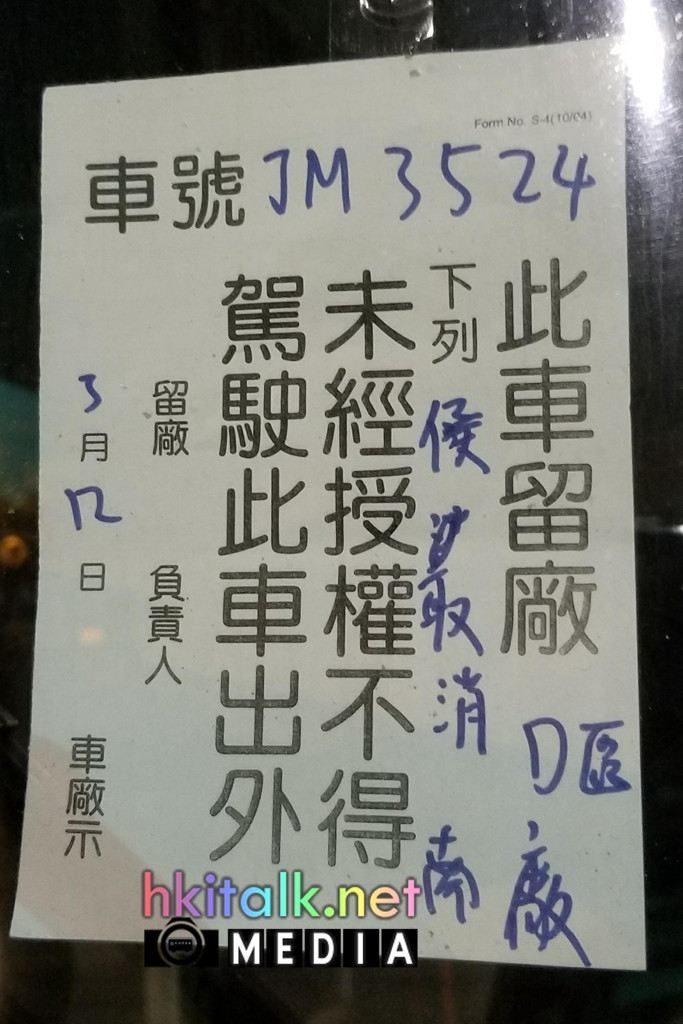 Form No. S-4(10/04)
車號 JM 3524
此車留廠 D區廠
下列 候 取消 南
未經授權不得
駕駛此車出外
留廠 負責人
3月12日 車廠示
hkitalk.net
MEDIA